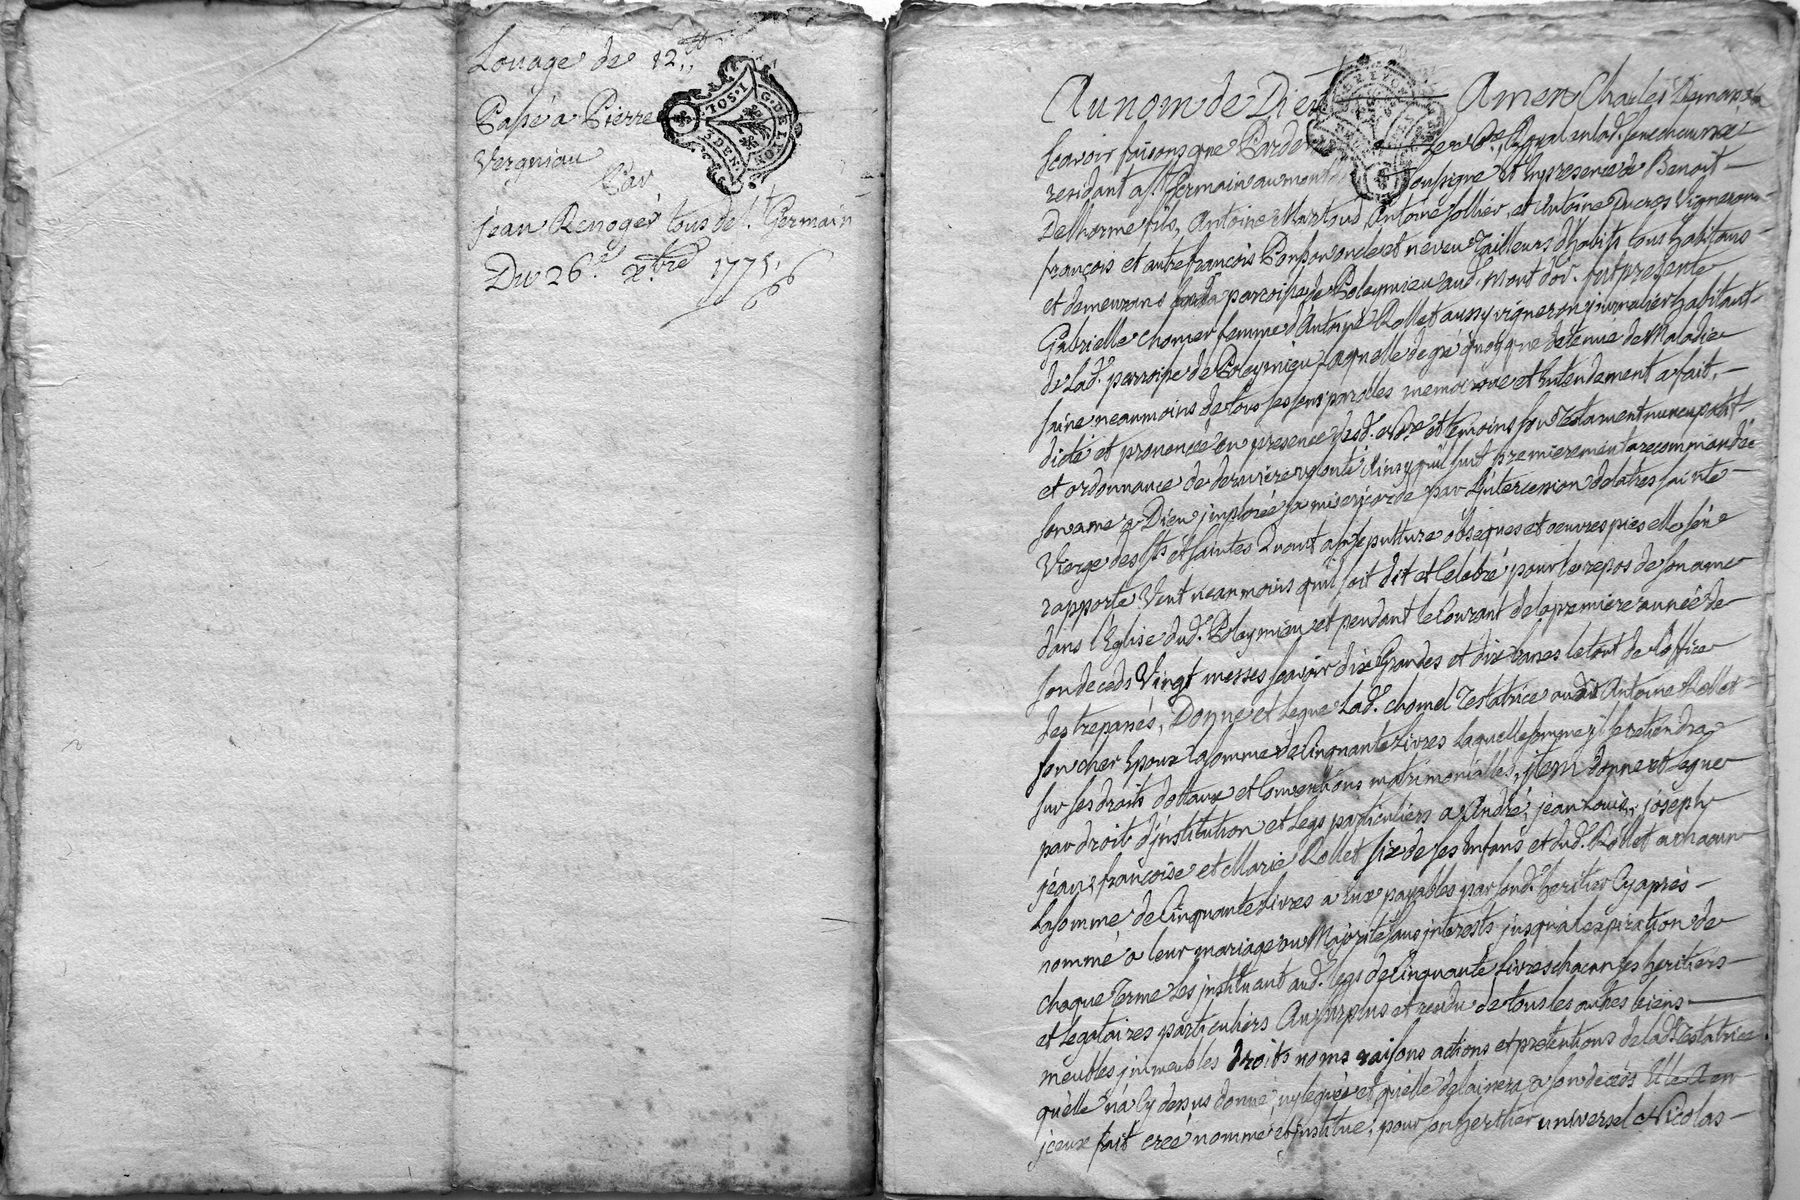 Louage de 12 tt
Passé a Pierre
Vergniau
Par
jean Renoger tous de St. Germain
Du 26e. xbre 1775
1. SOL. 3 DEN.
G. DE LYON
Au nom de Dieu Amen
Scavoir faisons que Pardevant Royal
residant a St Germain au mont soussigné et En presence de Benoit
Delhorme fils, Antoine Martous, Antoine Jollier, et Antoine Ducros Vignerons
françois et autre françois Ponson oncle et neveu Tailleurs d'habits tous habitans
et demeurans paroisse de Poleymieu aud. Mont d'or. fut presente
Gabrielle Chomer femme d'Antoine Rollet aussy vigneron journalier habitant
de Lad. parroisse de Poleymieu Laquelle de gré quoyque detenue de Maladie
saine neanmoins de tous ses sens parolles memoire et Entendement a fait,
dicté et prononcé en presence desd. Nore et temoins son Testament nuncupatif
et ordonnance de derniere volonté Ainsy quil suit premierement a recommandée
son ame a Dieu jmplorée sa misericorde par L'intercession de la tres sainte
Vierge des Sts et saintes Quant a sa sepulture obseques et oeuvres pies elle s'en
rapporte Veut neanmoins qu'il soit dit et Celebré pour le repos de son ame
dans L'Eglise dud. Poleymieu et pendant le Courant de la premiere année de
son deceds Vingt messes scavoir dix Grandes et dix basses le tout de L'office
des trepassés, Donne et Legue Lad. chomel Testatrice audit Antoine Rollet
son cher Epoux la somme de Cinquante Livres Laquelle somme jl se retiendra
sur ses droits dotaux et Conventions matrimonialles, jtem donne et Legue
par droit d'jnstitution et Legs particuliers a André, jean Louis, joseph
jean, françoise et Marie Rollet six de ses Enfans et dud. Rollet a chacun
La somme de Cinquante Livres a Eux payables par sond. heritier Cy apres
nommé a leur mariage ou Majorité sans jnterests jusqu'a l'expiration de
chaque Terme Les jnstituant aud. Legs de Cinquante Livres chacun ses heritiers
et Legataires particuliers Au surplus et residu de tous les autres biens
meubles jmmeubles droits noms raisons actions et pretentions de lad. Testatrice
qu'elle n'a Cy dessus donné, ny legués et qu'elle delaissera a son deceds Elle a en
jceux fait créé nommé et jnstitue, pour son heritier universel Nicolas